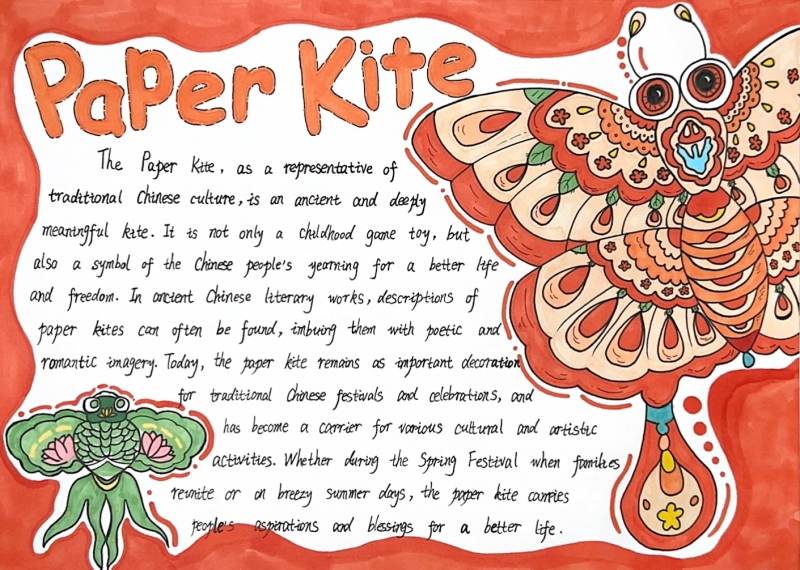 Paper Kite
The Paper Kite, as a representative of
traditional Chinese culture, is an ancient and deeply
meaningful kite. It is not only a childhood game toy, but
also a symbol of the Chinese people's yearning for a better life
and freedom. In ancient Chinese literary works, descriptions of
paper kites can often be found, imbuing them with poetic and
romantic imagery. Today, the paper kite remains as important decoration
for traditional Chinese festivals and celebrations, and
has become a carrier for various cultural and artistic
activities. Whether during the Spring Festival when families
reunite or on breezy summer days, the paper kite carries
people's aspirations and blessings for a better life.